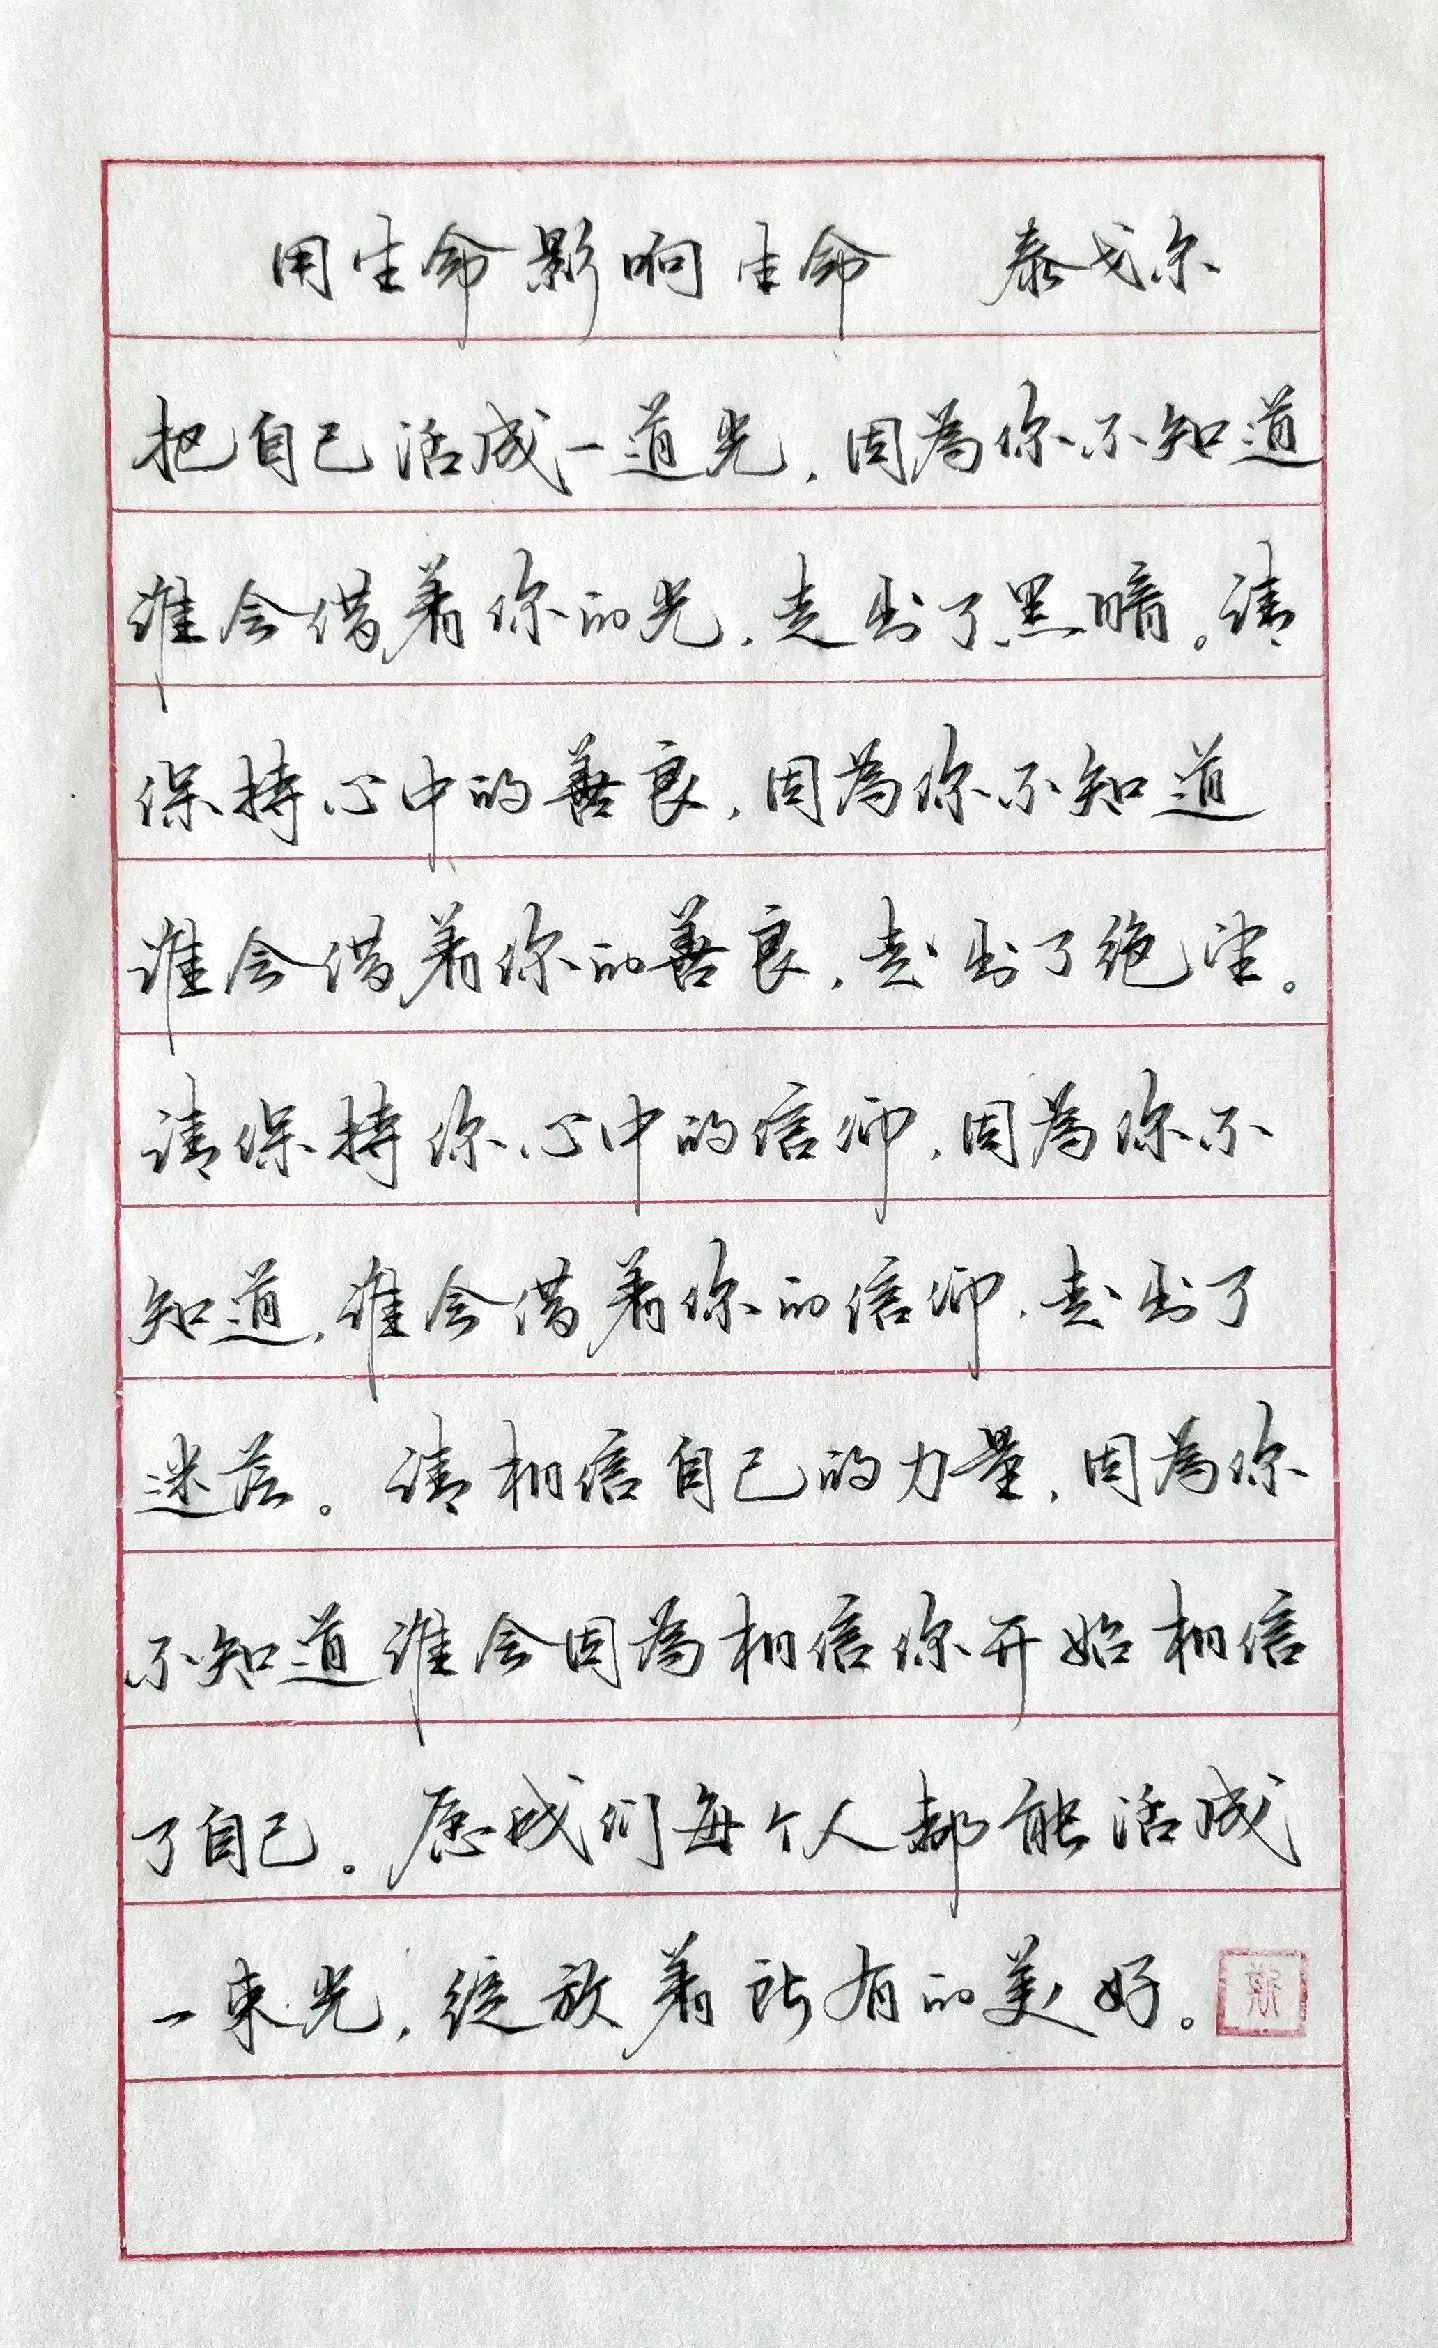 用生命影响生命 泰戈尔
把自己活成一道光，因为你不知道
谁会借着你的光，走出了黑暗。请
保持心中的善良，因为你不知道
谁会借着你的善良，走出了绝望。
请保持你心中的信仰，因为你不
知道，谁会借着你的信仰，走出了
迷茫。请相信自己的力量，因为你
不知道谁会因为相信你开始相信
了自己。愿我们每个人都能活成
一束光，绽放着所有的美好。